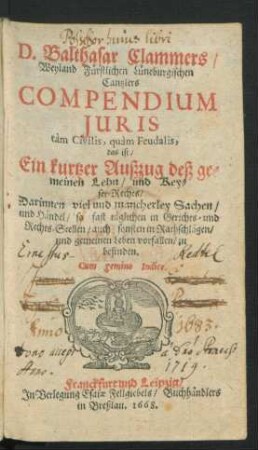 Possessor huius libri
D. Balthasar Clammers /
Weyland Fürstlichen Lüneburgischen
Cantzlers
COMPENDIUM
JURIS
tàm Civilis, quàm Feudalis,
das ist /
Ein kurtzer Außzug deß ge-
meinen Lehn / und Key-
ser-Rechts /
Darinnen viel und mancherley Sachen /
und Händel / so fast täglichen in Gerichts- und
Rechts-Stellen / auch sonsten in Rathschlägen /
und gemeinen Leben vorfallen / zu
befinden.
Cum gemino Indice.
Anno 1683.
Anno 1719.
Franckfurt und Leipzig /
In Verlegung Esaiæ Fellgiebels / Buchhändlers
in Breßlau. 1668.